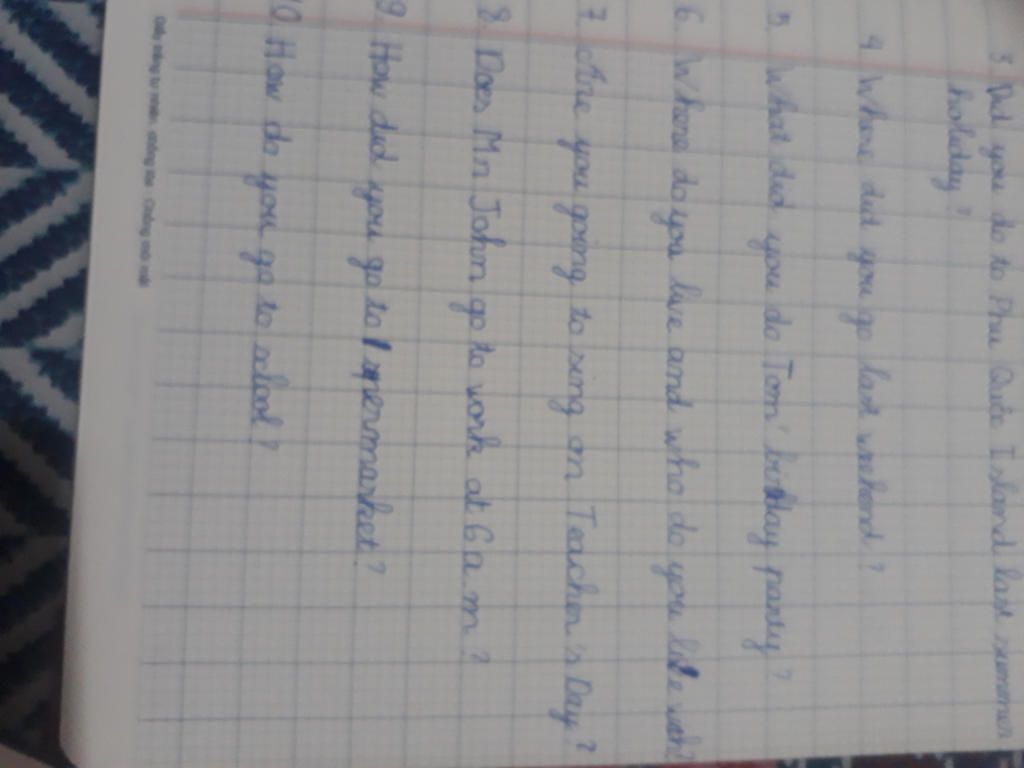 3. Did you do to Phu Quốc Island last summer
holiday?
4. Where did you go last wekend?
5. What did you do Tom' birday pardy?
6. Where do you live and who do you live with?
7. Are you going to sing on Teacher's Day?
8. Does Mr John go to work at 6 a.m?
9. How did you go to supermarket?
10. How do you go to school?